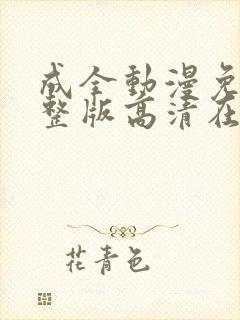 成全動漫免
整版高清在
花青色